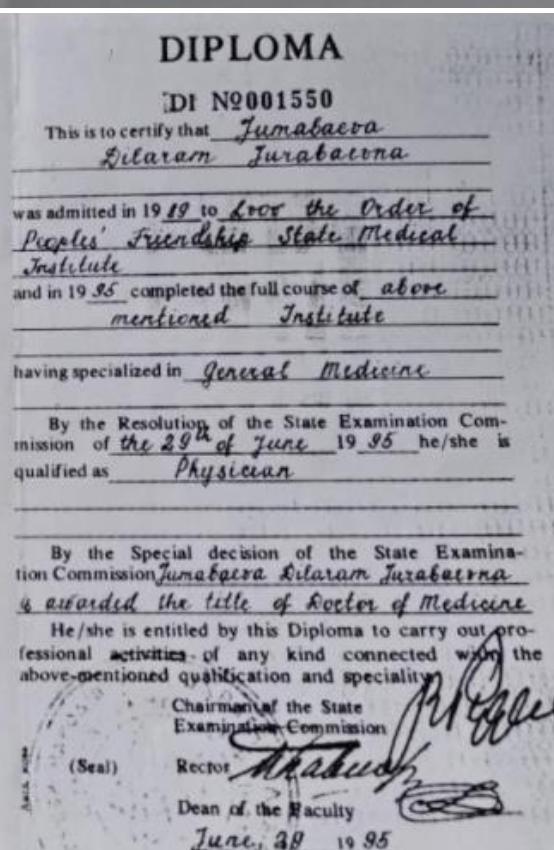 DIPLOMA
DI №001550
This is to certify that Jumabaeva
Dilaram Jurabaevna
was admitted in 19 89 to the Order of
Peoples' Friendship State Medical
Institute
and in 19 95 completed the full course of above
mentioned Institute
having specialized in General Medicine
By the Resolution of the State Examination Com-
mission of the 29th of June 19 95 he/she is
qualified as Physician
By the Special decision of the State Examina-
tion Commission Jumabaeva Dilaram Jurabaevna
is awarded the title of Doctor of Medicine
He/she is entitled by this Diploma to carry out pro-
fessional activities of any kind connected with the
above-mentioned qualification and speciality
Chairman of the State
Examination Commission
(Seal) Rector
Dean of the Faculty
June, 29 19 95